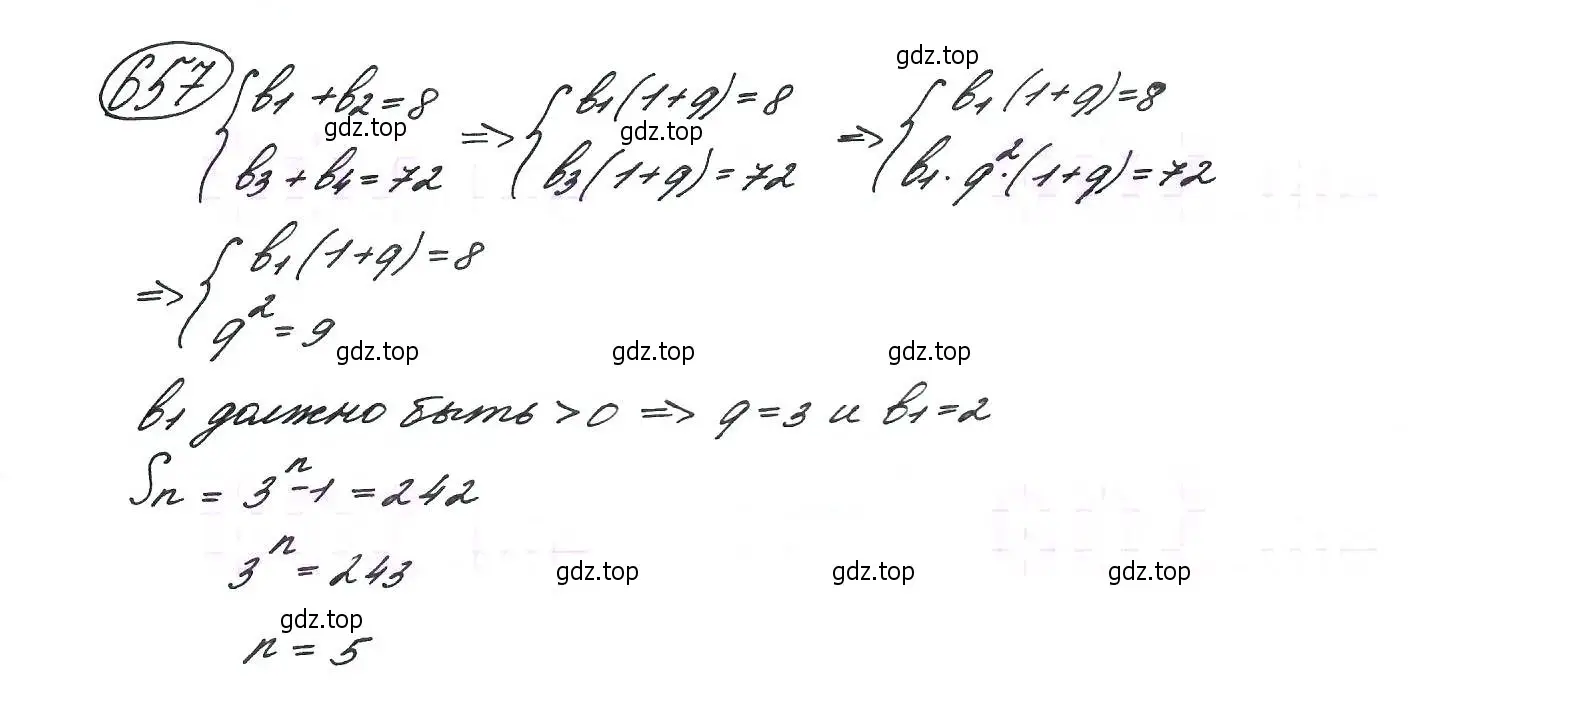 657 { b₁ + b₂ = 8 => { b₁(1+q) = 8 => { b₁(1+q) = 8
b₃ + b₄ = 72 b₃(1+q) = 72 b₁·q²·(1+q) = 72
gdz.top gdz.top gdz.top
=> { b₁(1+q) = 8
q² = 9
gdz.top gdz.top gdz.top
b₁ должно быть > 0 => q = 3 и b₁ = 2
Sn = 3ⁿ - 1 = 242
3ⁿ = 243
gdz.top gdz.top gdz.top
gdz.top
n = 5